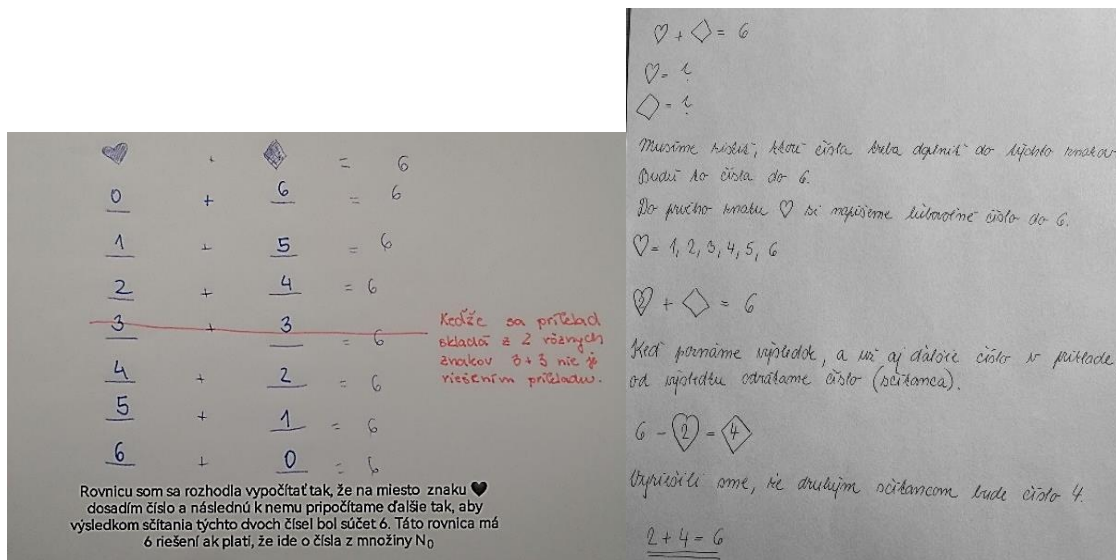 ♥ + ♦ = 6
0 + 6 = 6
1 + 5 = 6
2 + 4 = 6
3 + 3 = 6
4 + 2 = 6
5 + 1 = 6
6 + 0 = 6
Keďže sa príklad
skladá z 2 rôznych
znakov 3+3 nie je
riešením príkladu.
Rovnicu som sa rozhodla vypočítať tak, že na miesto znaku ♥
dosadím číslo a následnú k nemu pripočítame ďalšie tak, aby
výsledkom sčítania týchto dvoch čísel bol súčet 6. Táto rovnica má
6 riešení ak platí, že ide o čísla z množiny N₀
♡ + ◇ = 6
♡ = ?
◇ = ?
Musíme zistiť, ktoré čísla treba doplniť do týchto znakov
Budú to čísla do 6.
Do prvého znaku ♡ si napíšeme ľubovoľné číslo do 6.
♡ = 1, 2, 3, 4, 5, 6
2 + ◇ = 6
Keď poznáme výsledok, a už aj ďalšie číslo v príklade
od výsledku odrátame číslo (sčítanca).
6 - 2 = 4
Vyriešili sme, že druhým sčítancom bude číslo 4.
2 + 4 = 6